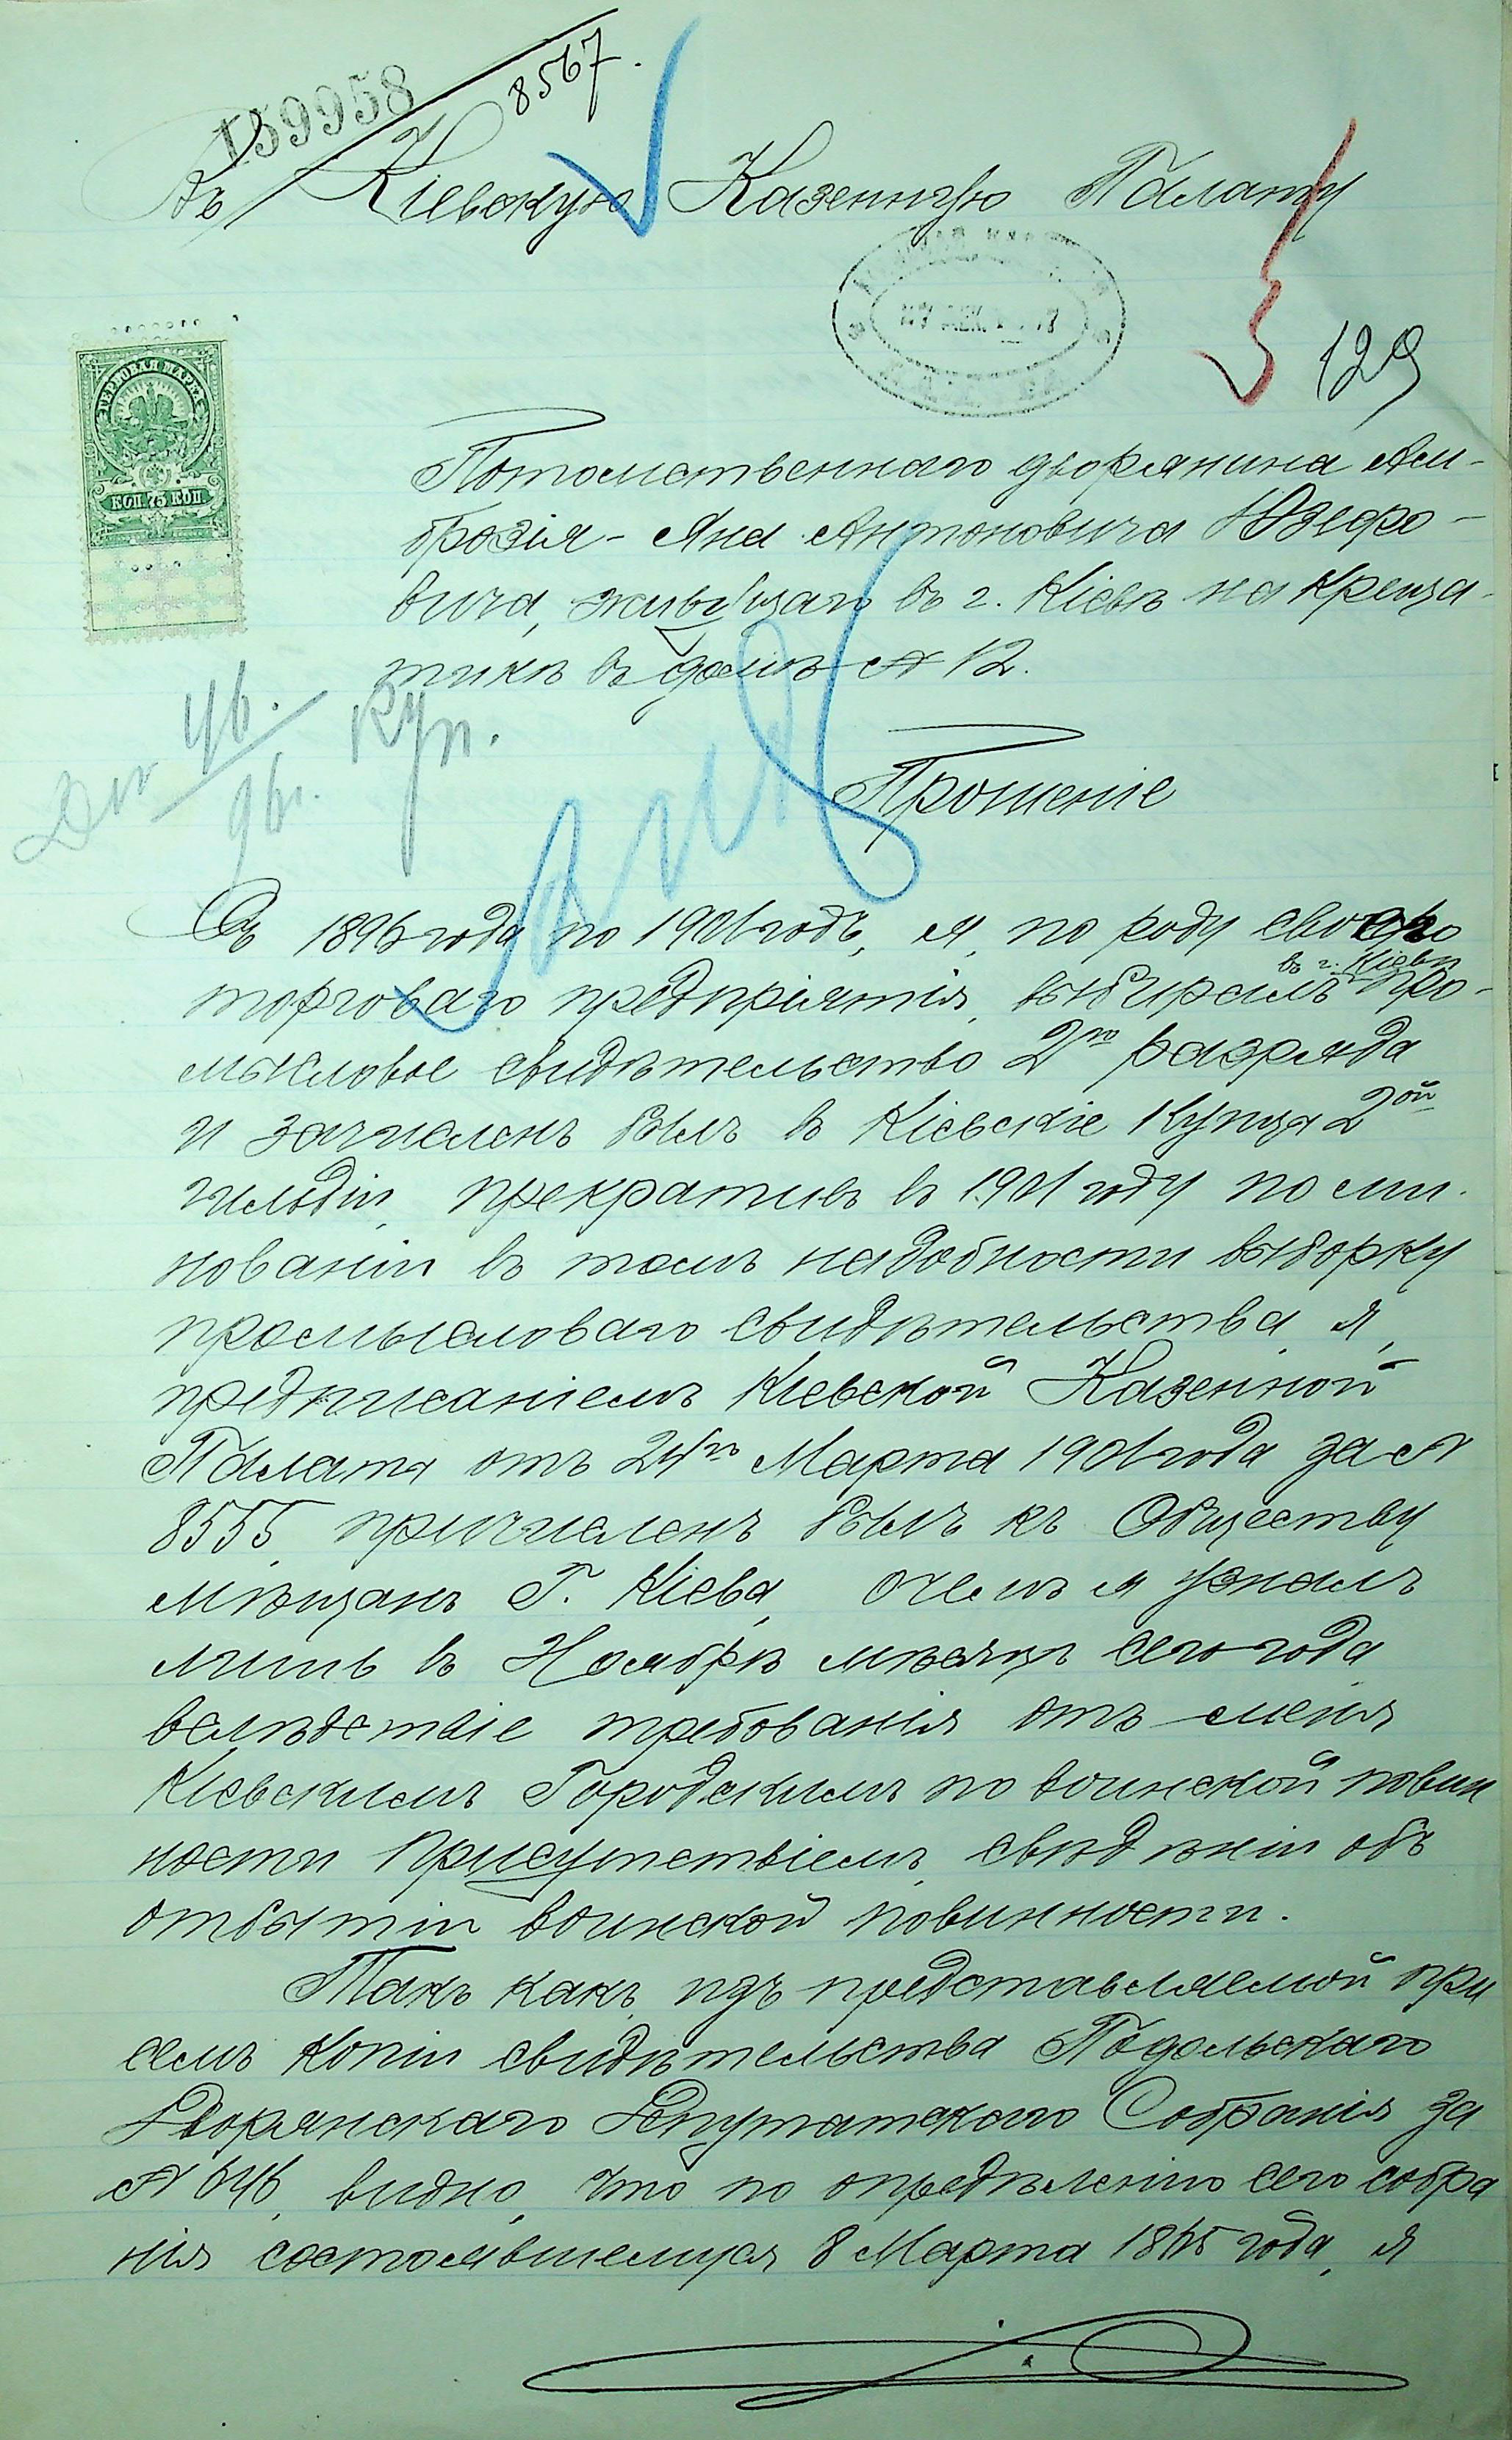 159958
8567.
Въ Кіевскую Казенную Палату
129
ГЕРБОВАЯ МАРКА
КОП 75 КОП
Потомственнаго дворянина Ам-
брозія-Яна Антоновича Юзефо-
вича, живущаго въ г. Кіевѣ на Креща-
тикѣ въ домѣ № 12.
Куп.
Прошеніе
Съ 1896 года по 1901 годъ, я, по роду своего
торговаго предпріятія, выбиралъ въ г. Кіевѣ про-
мысловое свидѣтельство 2го разряда
и зачисленъ былъ въ Кіевскіе Купцы 2ой
гильдіи, прекративъ въ 1901 году по ми-
нованіи въ томъ надобности выборку
промысловаго свидѣтельства, я,
предписаніемъ Кіевской Казенной
Палаты отъ 24го Марта 1901 года за №
8555, причисленъ былъ къ Обществу
мѣщанъ Г. Кіева, о чемъ я узналъ
лишь въ Ноябрѣ мѣсяцѣ сего года
вслѣдствіе требованія отъ меня
Кіевскимъ Городскимъ по воинской повин
ности Присутствіемъ, свѣдѣній объ
отбытіи воинской повинности.
Такъ какъ, изъ представляемой при
семъ копіи свидѣтельства Подольскаго
Дворянскаго Депутатскаго Собранія за
№ 646, видно, что по опредѣленію сего собра
нія состоявшемуся 8 Марта 1865 года, я